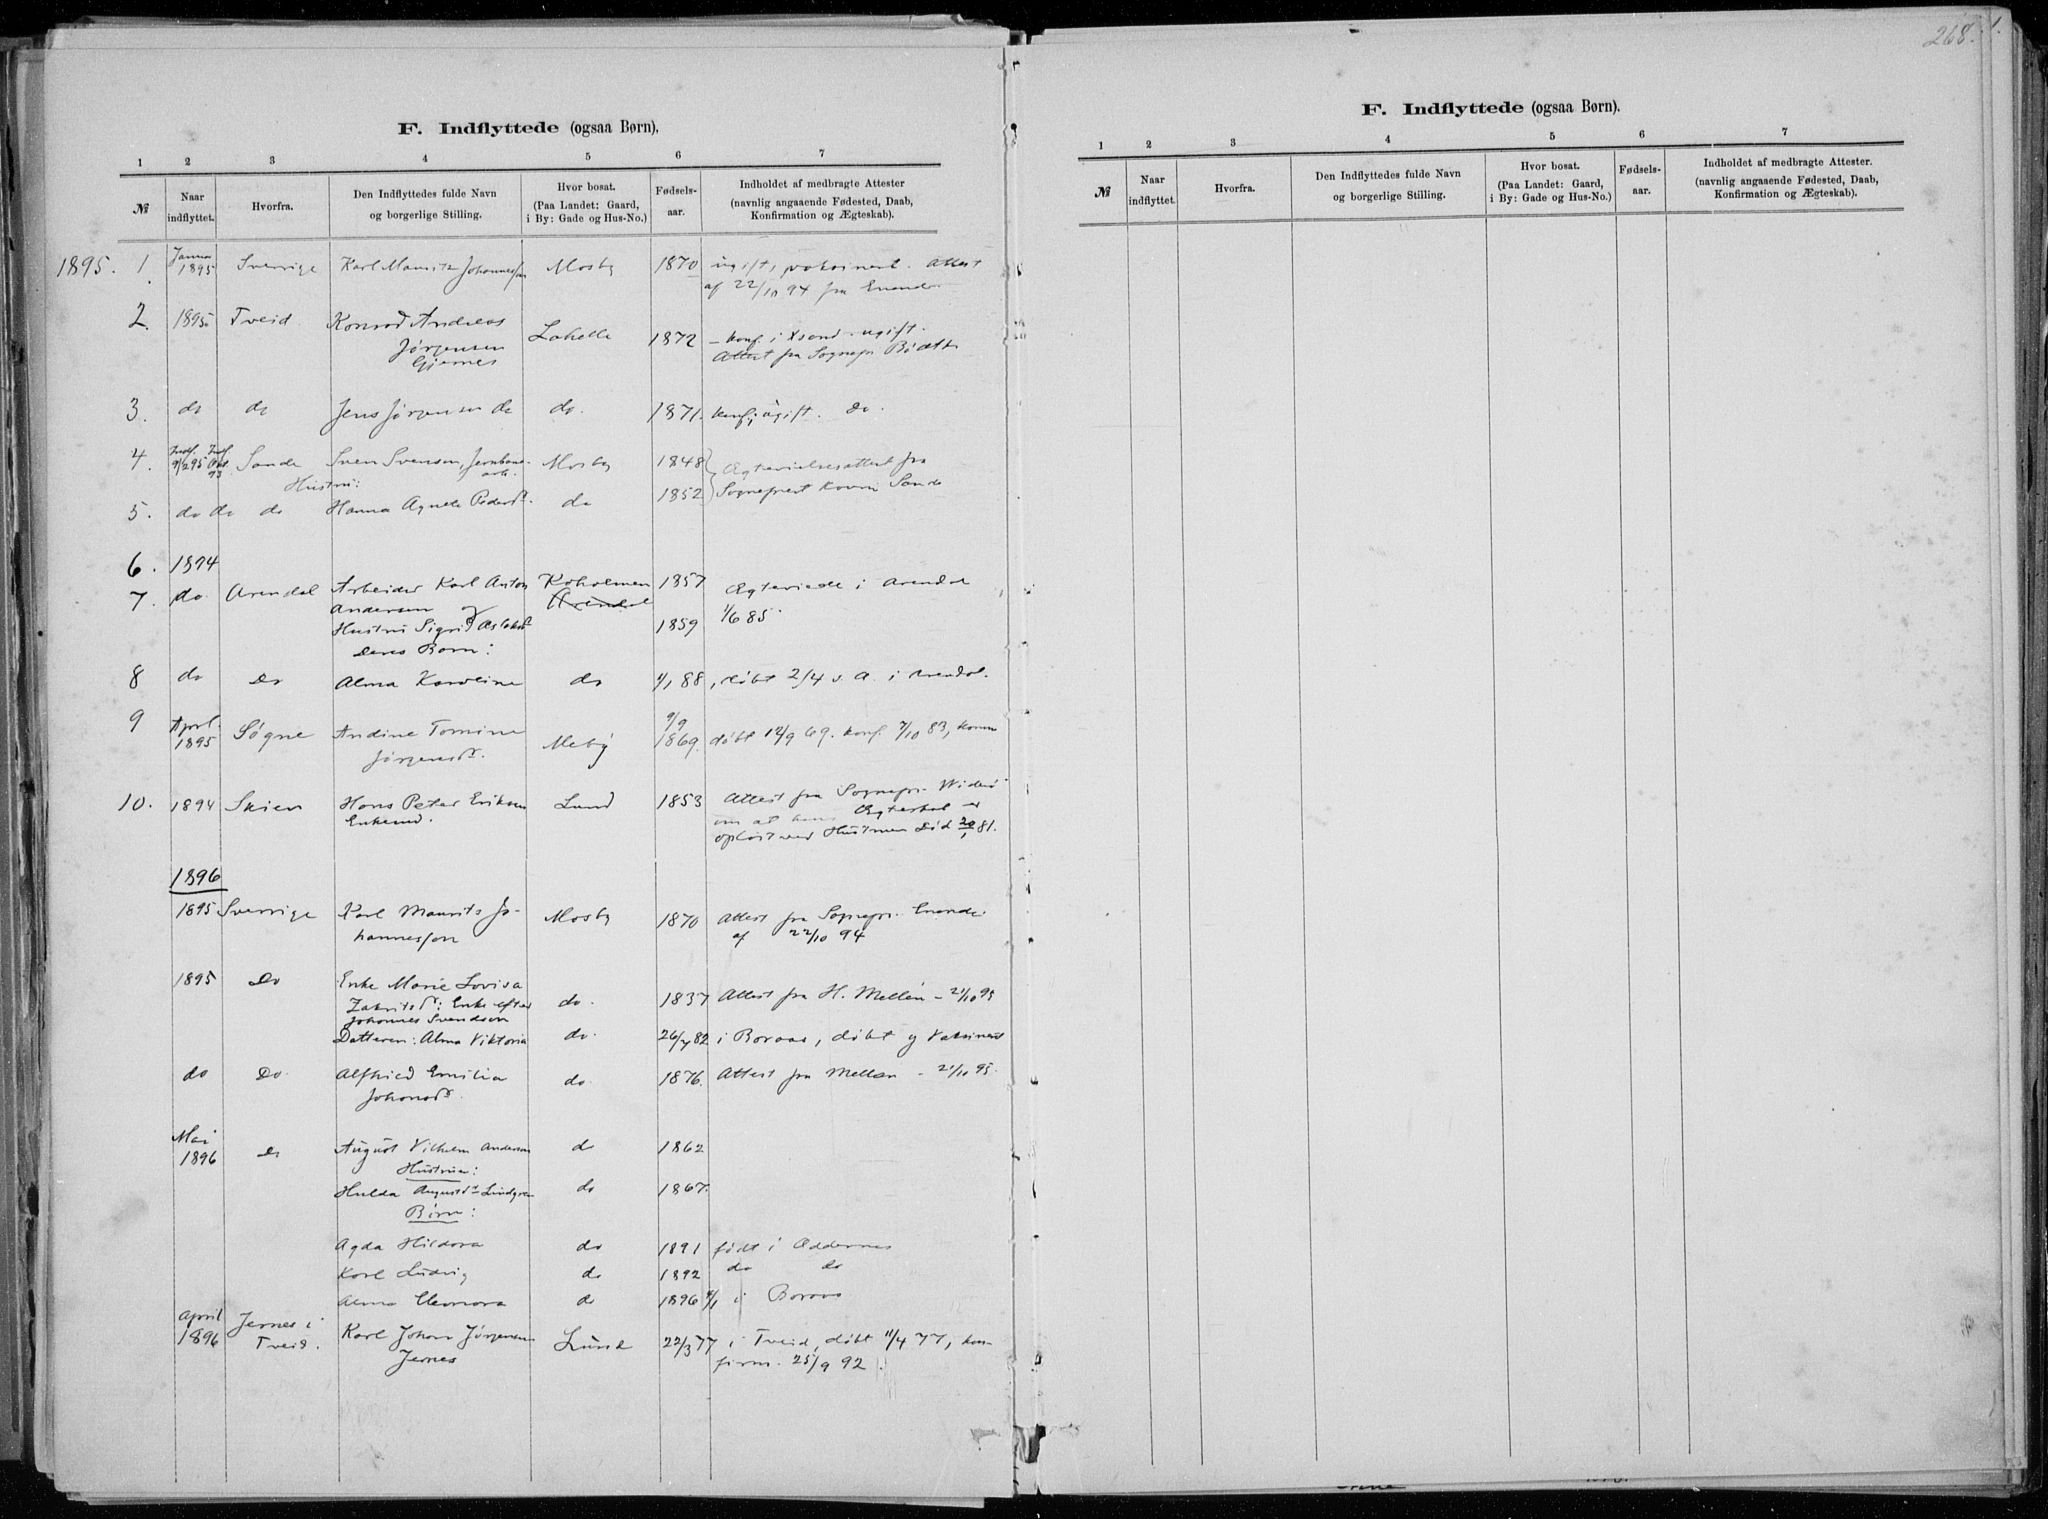 268.
F. Indflyttede (ogsaa Børn).
1 2 3 4 5 6 7
№
Naar indflyttet.
Hvorfra.
Den Indflyttedes fulde Navn og borgerlige Stilling.
Hvor bosat. (Paa Landet: Gaard, i By: Gade og Hus-No.)
Fødsels-aar.
Indholdet af medbragte Attester (navnlig angaaende Fødested, Daab, Konfirmation og Ægteskab).
1895. 1. Januar 1895 Sverrige Karl Mauritz Johannesson Mosby 1870 ugift, vaksinert. Attest
af 22/10 94 fra
2. 1895. Tveid Konrad Andreas
Jørgensen
Gjernes
Lahelle 1872 – konf. i Xsand. ugift.
Attest fra Sognepr.
3. do do Jens Jørgensen do do. 1871. konf; ugift. Do.
4. Sande Sven Svensen, Jernbane- Mosby 1848 Ægtevielsesattest fra
Hustru:
5. do do do Hanna Agnete Pedersd. do 1852 Sogneprest Sande
6. 1894
7. do. Arendal Arbeider Karl Anton Koholmen 1857 Ægteviede i Arendal
Andersen og Arendal 1/6 85.
Hustru Sigrid Aslaksd 1859
Deres Børn:
8 do Do Alma Karoline do 1/1 88, døbt 2/4 s. A. i Arendal.
9 April 1895 Søgne Andine Tomine
Jørgensd.
Meby 9/9 1869. døbt 12/9 69. konf. 7/10 83,
10. 1894 Skien Hans Peter Eriksen Lund 1853 Attest fra Sognepr.
Enkemd. om at hans Ægteskab er
opløst ved Hustruens Død 81.
1896
1895 Sverrige Karl Maurits Jo- Mosby 1870 Attest fra Sognepr.
hannesson af 22/10 94
1895 Do Enke Marie Lovisa
Enke efter do. 1837 Attest fra H. Mellén – 21/10 95
Johannes Svendson
Datteren: Alma Viktoria do. 82 i Boraas, døbt og Vaksinert
do Do. Alfhild Emilia do. 1876. Attest fra Mellén – 21/10 95.
Johansd.
Mai
1896 Do August Vilhelm Anderson do 1862
Hustruen:
Hulda Augustd Lindgren do 1867.
Børn:
Agda Hildora do 1891 født i Oddernes
Karl Ludvig do 1892 do do
Alma Eleonora do 1896 i Boraas
April
1896 Jernes i Karl Johan Jørgensen Lund 22/3 77 i Tveid, døbt 11/4 77, kon-
Tveid. Jernes firm. 25/9 92.
F. Indflyttede (ogsaa Børn).
1 2 3 4 5 6 7
№
Naar indflyttet.
Hvorfra.
Den Indflyttedes fulde Navn og borgerlige Stilling.
Hvor bosat. (Paa Landet: Gaard, i By: Gade og Hus-No.)
Fødsels-aar.
Indholdet af medbragte Attester. (navnlig angaaende Fødested, Daab, Konfirmation og Ægteskab).